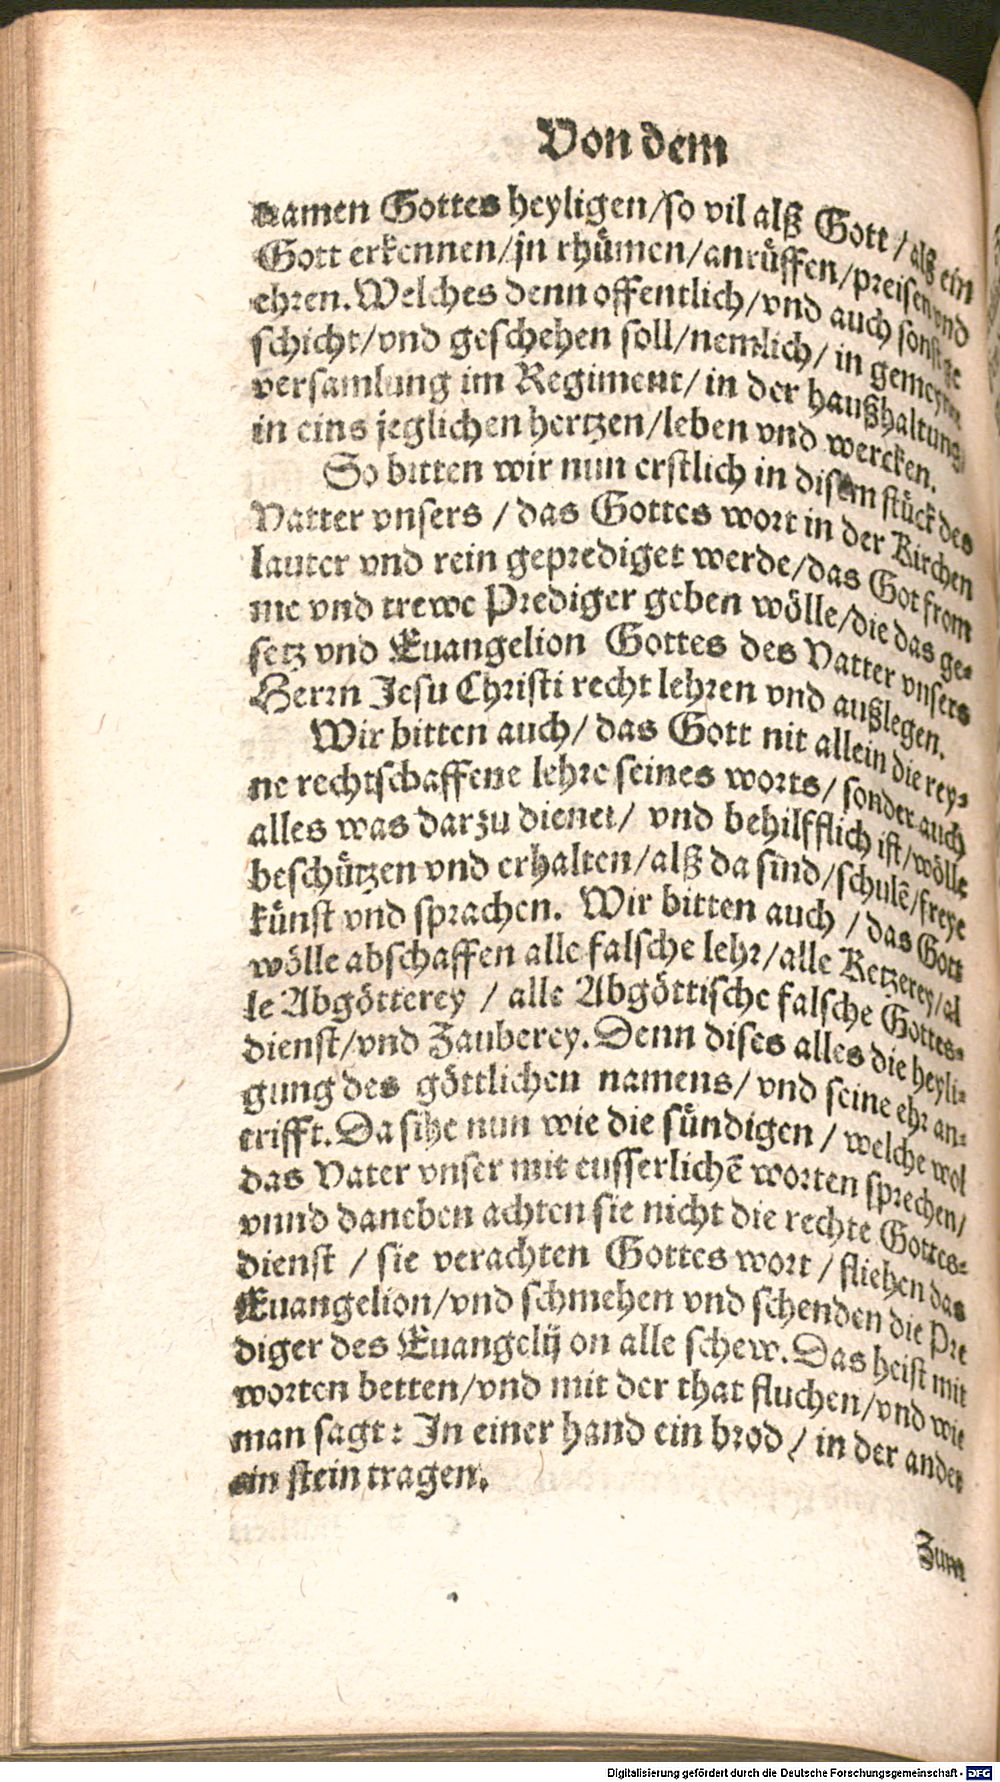 Von dem
namen Gottes heyligen/so vil alß Gott/alß ein
Gott erkennen/jn rhuͤmen/anruͤffen/preisen vnd
ehren. Welches denn offentlich/vnd auch sonst ge
schicht/vnd geschehen soll/nemlich/ in gemeyner
versamlung im Regiment/ in der haußhaltung/
in eins jeglichen hertzen/leben vnd wercken.
So bitten wir nun erstlich in disem stuͤck des
Vatter vnsers /das Gottes wort in der Kirchen
lauter vnd rein geprediget werde/das Got from
me vnd trewe Prediger geben woͤlle/die das ge⸗
setz vnd Euangelion Gottes des Vatter vnsers
Herrn Jesu Christi recht lehren vnd außlegen.
Wir bitten auch/ das Gott nit allein die rey⸗
ne rechtschaffene lehre seines worts/ sonder auch
alles was darzu dienet/ vnd behilfflich ist/woͤlle
beschuͤtzen vnd erhalten/alß da sind/schulẽ/freye
kuͤnst vnd sprachen. Wir bitten auch /das Gott
woͤlle abschaffen alle falsche lehr/alle Ketzerey/al
le Abgoͤtterey / alle Abgoͤttische falsche Gottes⸗
dienst/vnd Zauberey. Denn dises alles die heyli⸗
gung des goͤttlichen namens/ vnd seine ehr an⸗
trifft. Da sihe nun wie die suͤndigen / welche wol
das Vater vnser mit eusserlichẽ worten sprechen/
vnnd daneben achten sie nicht die rechte Gottes⸗
dienst / sie verachten Gottes wort / fliehen das
Euangelion/vnd schmehen vnd schenden die Pre
diger des Euangelij on alle schew. Das heist mit
worten betten/vnd mit der that fluchen/vnd wie
man sagt: In einer hand ein brod / in der ander
ein stein tragen.
Zum
Digitalisierung gefördert durch die Deutsche Forschungsgemeinschaft - DFG